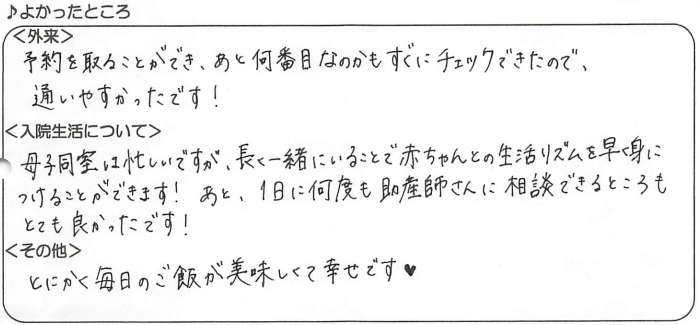 ♪よかったところ
＜外来＞
予約を取ることができ、あと何番目なのかもすぐにチェックできたので、
通いやすかったです！
＜入院生活について＞
母子同室は忙しいですが、長く一緒にいることで赤ちゃんとの生活リズムを早く身に
つけることができます！ あと、1日に何度も助産師さんに相談できるところも
とても良かったです！
＜その他＞
とにかく毎日のご飯が美味しくて幸せです♥